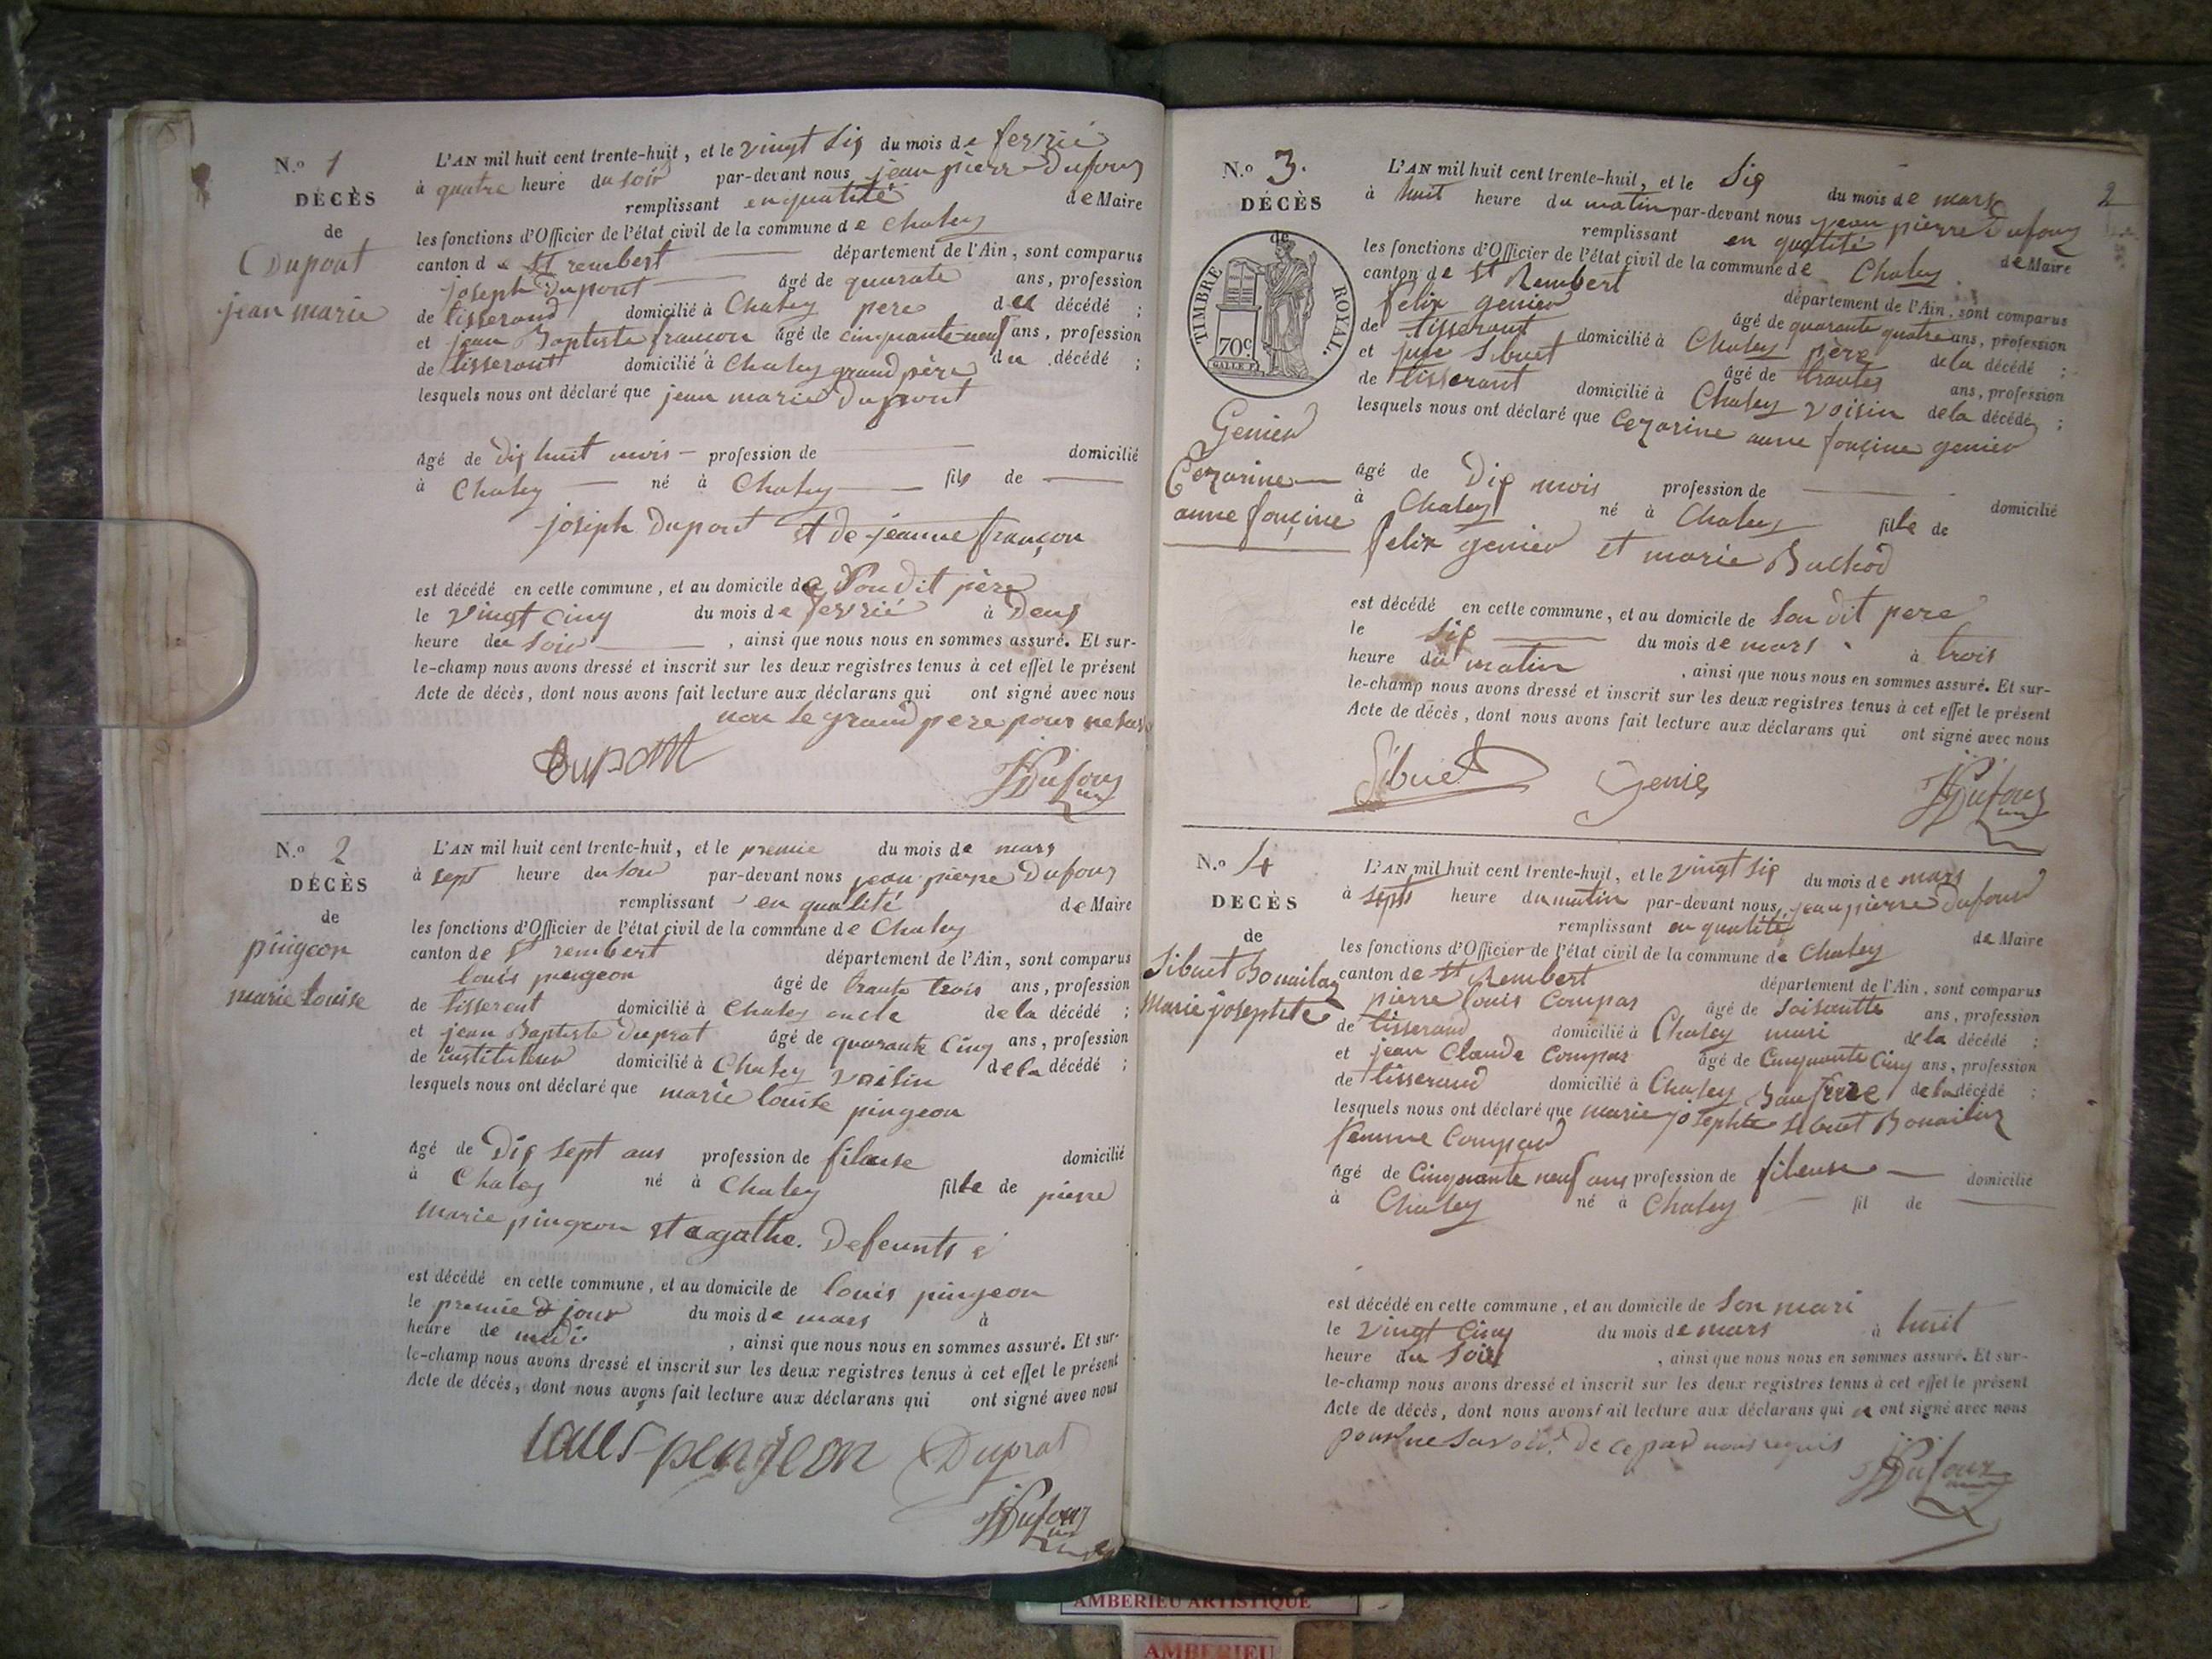 N.o 1
DÉCÈS
de
Dupont
jean marie
L'AN mil huit cent trente-huit, et le vingt sig du mois de fevrié
à quatre heure du soir par-devant nous jean pierre Dufour
remplissant en qualité de Maire
les fonctions d'Officier de l'état civil de la commune de Chaley
canton de St rembert département de l'Ain, sont comparus
joseph dupont âgé de quarate ans, profession
de tisserand domicilié à Chaley pere du décédé ;
et jean Baptiste françon âgé de cinquante neuf ans, profession
de tisserant domicilié à Chaley grand père du décédé ;
lesquels nous ont déclaré que jean marie Dupont
âgé de dig huit mois profession de domicilié
à Chaley né à Chaley fils de
joseph Dupont et de jeanne françon
est décédé en cette commune, et au domicile de son dit père
le vingt cinq du mois de fevrié à Deus
heure du soir , ainsi que nous nous en sommes assuré. Et sur-
le-champ nous avons dressé et inscrit sur les deux registres tenus à cet effet le présent
Acte de décès, dont nous avons fait lecture aux déclarans qui ont signé avec nous
non le grand pere pour ne
Dupont
JPDufour
N.o 2
DÉCÈS
de
pingeon
marie Louise
L'AN mil huit cent trente-huit, et le premie du mois de mars
à sept heure du soir par-devant nous jean pierre Dufour
remplissant en qualité de Maire
les fonctions d'Officier de l'état civil de la commune de Chaley
canton de St rembert département de l'Ain, sont comparus
louis pingeon âgé de trante trois ans, profession
de tisserent domicilié à Chaley oncle de la décédé ;
et jean Baptiste Duprat âgé de quarante Cinq ans, profession
de instituteur domicilié à Chaley voisin de la décédé ;
lesquels nous ont déclaré que marie louise pingeon
âgé de Dig sept ans profession de fileuse domicilié
à Chaley né à Chaley fille de pierre
marie pingeon et agathe. Defeunts
est décédé en cette commune, et au domicile de louis pingeon
le premie jour du mois de mars à
heure de midi , ainsi que nous nous en sommes assuré. Et sur-
le-champ nous avons dressé et inscrit sur les deux registres tenus à cet effet le présent
Acte de décès, dont nous avons fait lecture aux déclarans qui ont signé avec nous
louis pengeon Duprat
JPDufour
2
N.o 3.
DÉCÈS
de
TIMBRE ROYAL.
70c
GALLE F.
Genier
Cezarine
anne fonçine
L'AN mil huit cent trente-huit, et le Sig du mois de mars
à huit heure du matin par-devant nous jean pierre Dufour
remplissant en qualité de Maire
les fonctions d'Officier de l'état civil de la commune de Chaley
canton de St Rembert département de l'Ain, sont comparus
felix genier âgé de quarante quatre ans, profession
de tisserant domicilié à Chaley père de la décédé ;
et Sibuet âgé de trante ans, profession
de tisserant domicilié à Chaley voisin de la décédé ;
lesquels nous ont déclaré que Cezarine anne fonçine genier
âgé de Dig mois profession de domicilié
à Chaley né à Chaley fille de
felix genier et marie Buchod
est décédé en cette commune, et au domicile de Son dit pere
le Sig du mois de mars à trois
heure du matin , ainsi que nous nous en sommes assuré. Et sur-
le-champ nous avons dressé et inscrit sur les deux registres tenus à cet effet le présent
Acte de décès, dont nous avons fait lecture aux déclarans qui ont signé avec nous
Sibuet Genie
JPDufour
N.o 4
DECÈS
de
Sibuet Bonailay
Marie josephte
L'AN mil huit cent trente-huit, et le vingt sig du mois de mars
à sept heure du matin par-devant nous, jean pierre Dufour
remplissant en qualité de Maire
les fonctions d'Officier de l'état civil de la commune de Chaley
canton de St Rembert département de l'Ain, sont comparus
pierre louis Compas âgé de soisantte ans, profession
de tisserand domicilié à Chaley mari de la décédé ;
et jean Claude Compas âgé de Cinquante Cinq ans, profession
de tisserand domicilié à Chaley Baufrere de la décédé ;
lesquels nous ont déclaré que marie josephte Sibuet
femme Compas
âgé de Cinquante neuf ans profession de fileuse domicilié
à Chaley né à Chaley fil de
est décédé en cette commune, et au domicile de Son mari
le vingt Cinq du mois de mars à huit
heure du soir , ainsi que nous nous en sommes assuré. Et sur-
le-champ nous avons dressé et inscrit sur les deux registres tenus à cet effet le présent
Acte de décès, dont nous avons fait lecture aux déclarans qui n ont signé avec nous
pour ne savoir. de ce par nous requis
JPDufour
AMBERIEU ARTISTIQUE
AMBERIEU